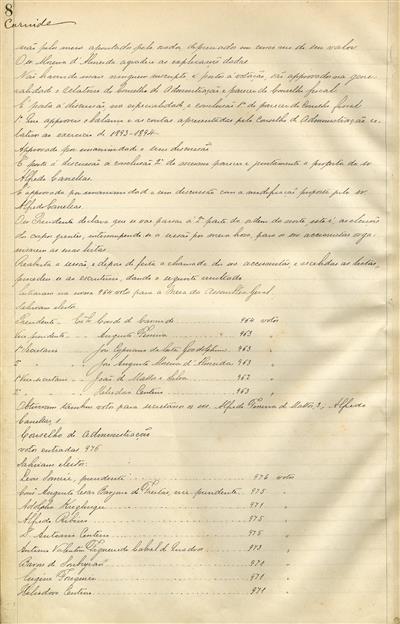 8
Carnide
mas pelo meio apontado pelo orador, depreciados em cincoenta de seu valor
O sr. Moreira d'Almeida agradece as explicações dadas
Não havendo mais ninguem inscripto e posto á votação, são approvados na gene-
ralidade o relatorio do Conselho de Administração e parecer do Conselho fiscal
É posta á discussão, na especialidade, a conclusão 1ª do parecer do Conselho fiscal
1ª Que approveis o balanço e as contas apresentadas pelo Conselho de Administração re-
lativo ao exercicio de 1893-1894.
Approvada por unanimidade e sem discussão
É posta á discussão a conclusão 2ª do mesmo parecer e juntamente a proposta do sr.
Alfredo Canellas.
É approvada por unanimidade e sem discussão com a modificação proposta pelo sr.
Alfredo Canellas
O sr. Presidente declara que se vae passar á 2ª parte da ordem da noite, isto é, a eleição
dos corpos gerentes, interrompendo-se a sessão por meia hora, para os srs. accionistas orga-
nisarem as suas listas.
Reaberta a sessão e depois de feita a chamada dos srs. accionistas, e recebidas as listas,
procedeu-se ao escrutinio, dando o seguinte resultado
Entraram na urna 964 votos para a Meza da Assemblea Geral.
Sahiram eleitos
Presidente - Conde de Carnide 964 votos
Vice presidente - Augusto Ferreira 963 "
1º Secretario - José Cypriano da Costa Goodolphim 963 "
2º " - José Augusto Moreira d'Almeida 963 "
1º Vice-secretario - João de Mattos e Silva 963 "
2º " " - Heliodoro Centeno 963 "
Obtiveram tambem votos para secretarios os srs. Alfredo Pereira de Mattos, 3; Alfredo
Canellas, 1
Conselho de Administração
votos entrados 976
Sahiram eleitos:
presidente 976 votos
José Augusto Cesar de Freitas, vice presidente 975 "
Adolpho 971 "
Alfredo Ribeiro 975 "
D. Antonio Centeno 975 "
Antonio Valentim Figueiredo Cabral de 973 "
Barão de 970 "
Eugène 971 "
Heliodoro Centeno 971 "